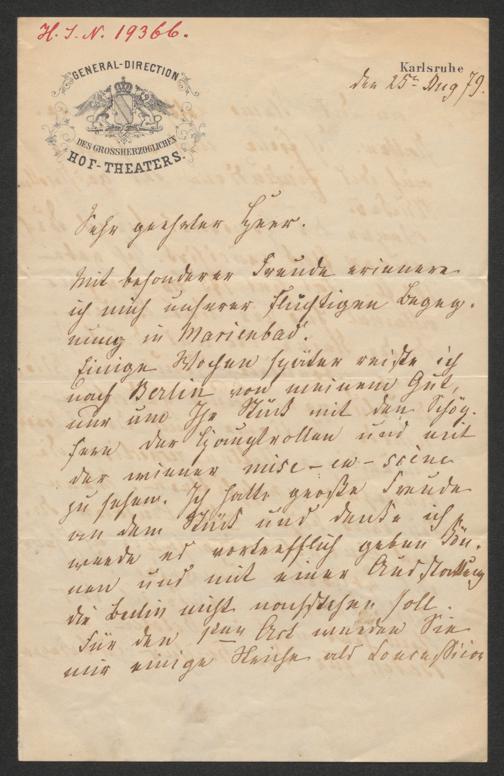 H. I. N. 19366.
GENERAL-DIRECTION
DES GROSSHERZOGLICHEN
HOF-THEATERS.
Karlsruhe
den 25t Aug 79.
Sehr geehrter Herr.
Mit besonderer Freude erinnere
ich mich unserer flüchtigen Begeg-
nung in Marienbad.
Einige Wochen später reiste ich
nach Berlin von meinem Gut,
nur um Ihr Stück mit den Schöp-
fern der Hauptrollen und mit
der wiener mise-en-scène
zu sehen. Ich hatte große Freude
an dem Stück und denke ich
werde es vortrefflich geben kön-
nen und mit einer Ausstattung
die Berlin nicht nachstehen soll.
Für den 1ten Act werden Sie
mir einige Striche als Concession